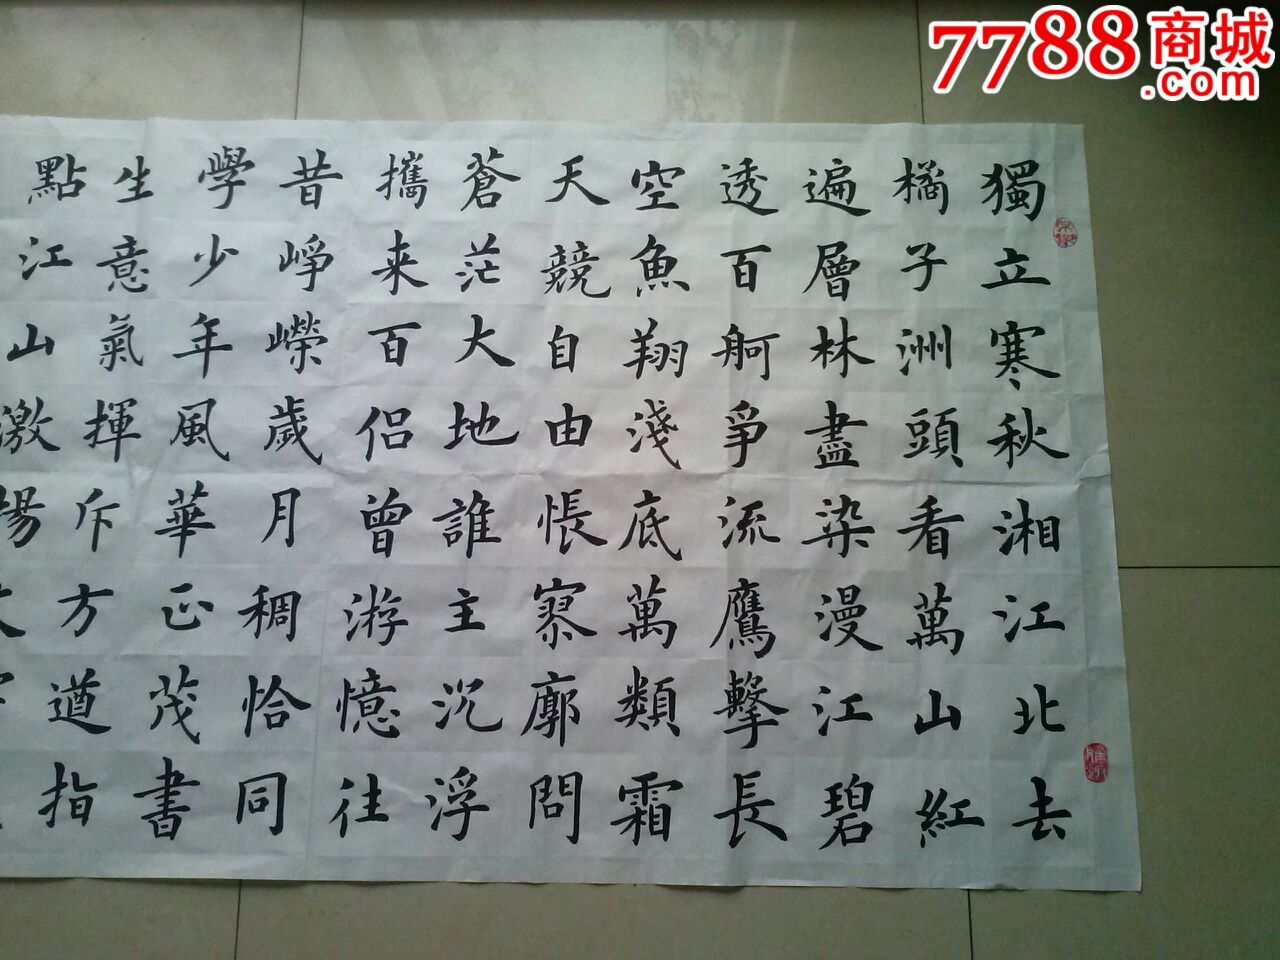 獨立寒秋湘江北去
橘子洲頭看萬山紅
遍層林盡染漫江碧
透百舸爭流鷹擊長
空魚翔淺底萬類霜
天競自由悵寥廓問
蒼茫大地誰主沉浮
攜来百侣曾游憶往
昔崢嶸歲月稠恰同
學少年風華正茂書
生意氣揮斥方遒指
點江山激揚
7788商城
.com